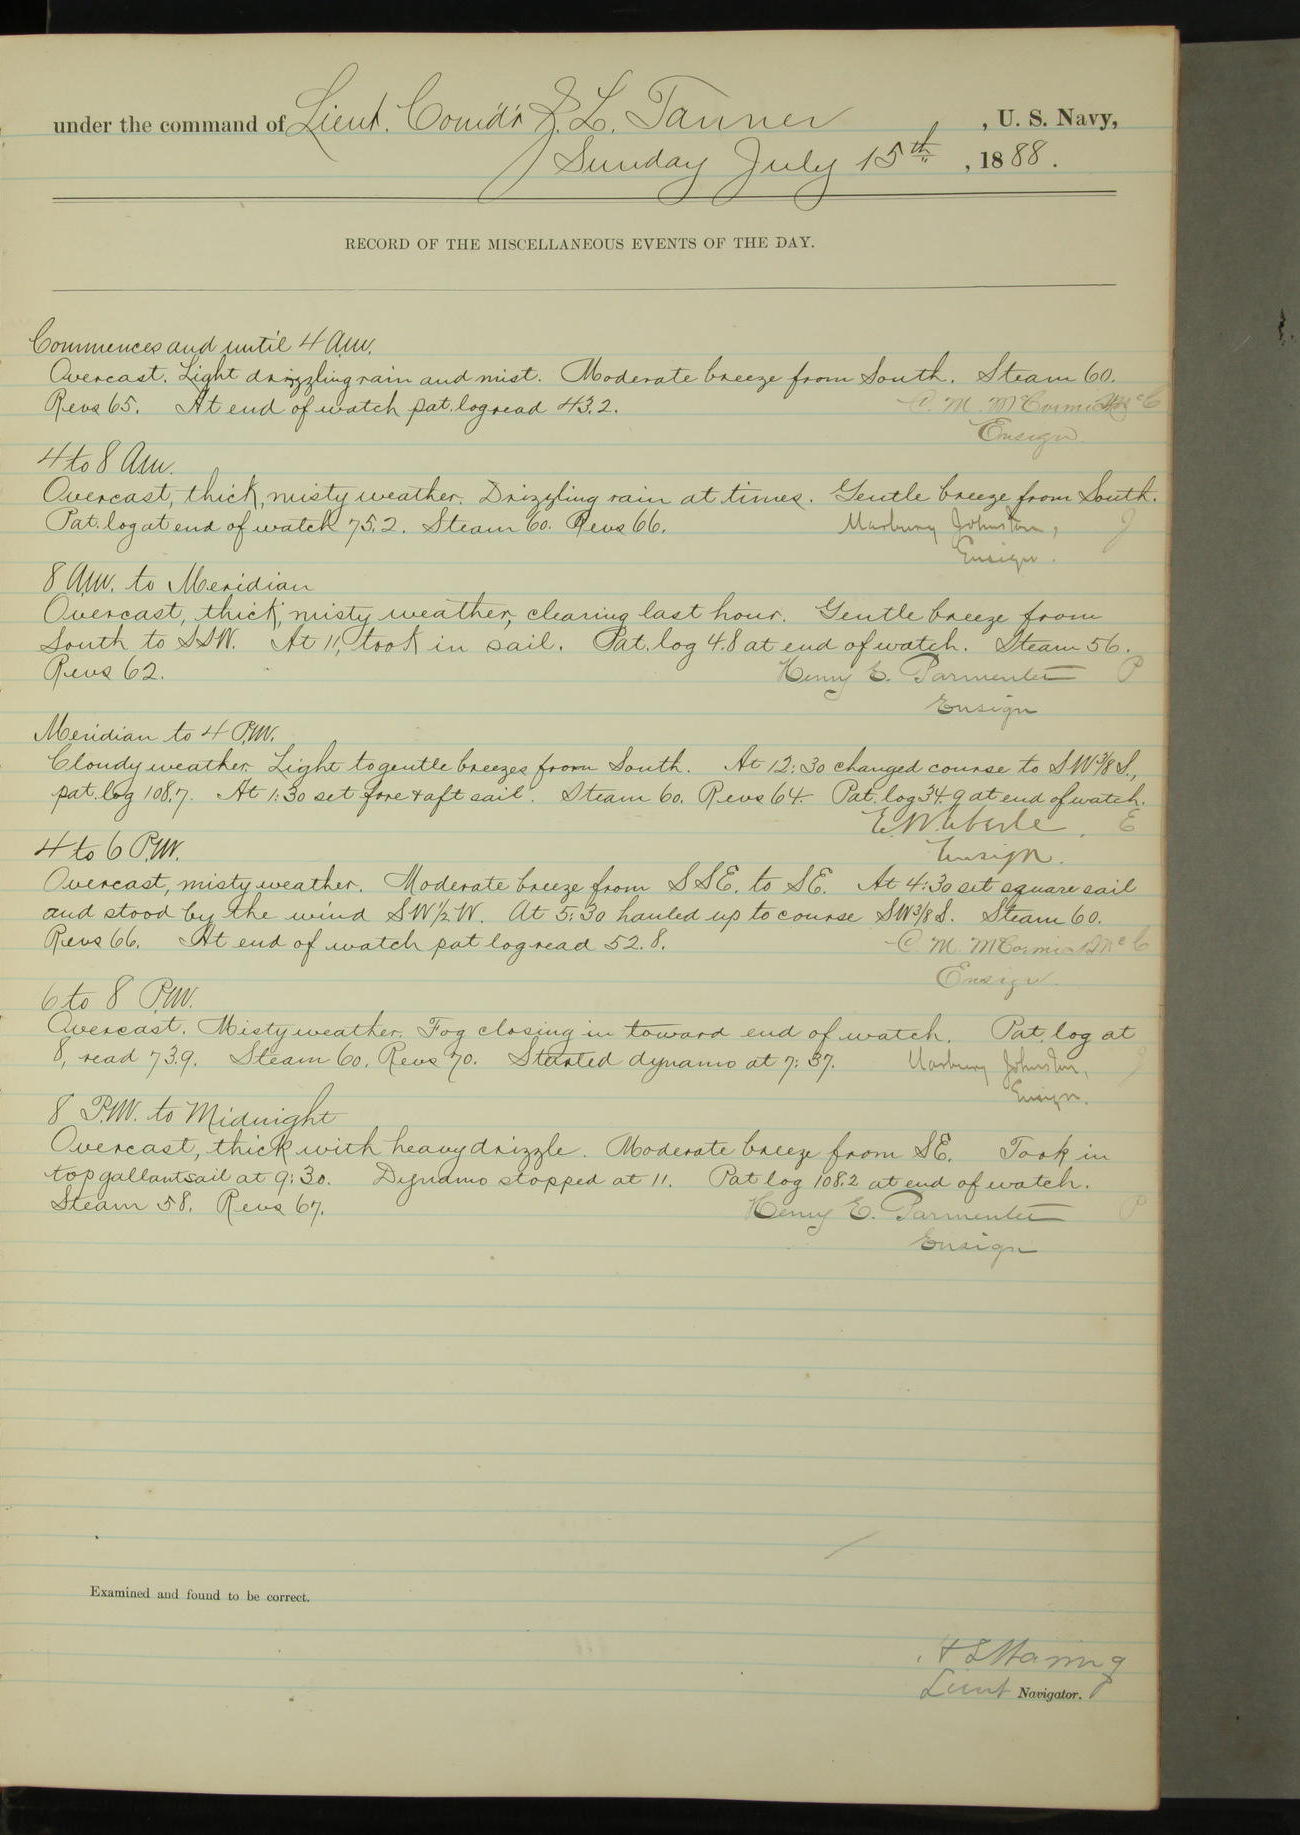 under the command of Lieut. Comd'r Z. L. Tanner, U. S. Navy,
Sunday July 15th, 1888.
RECORD OF THE MISCELLANEOUS EVENTS OF THE DAY.
Commences and until 4 A.M.
Overcast. Light drizzling rain and mist. Moderate breeze from South. Steam 60.
Revs 65. At end of watch pat. log read 43.2. C. M. McCormick McC
Ensign
4 to 8 A.M.
Overcast, thick, misty weather. Drizzling rain at times. Gentle breeze from South.
Pat. log at end of watch 75.2. Steam 60. Revs 66. Marbury Johnston, J
Ensign.
8 A.M. to Meridian
Overcast, thick, misty weather, clearing last hour. Gentle breeze from
South to SSW. At 11, took in sail. Pat. log 4.8 at end of watch. Steam 56.
Revs 62. Henry E. Parmenter P
Ensign
Meridian to 4 P.M.
Cloudy weather. Light to gentle breezes from South. At 12:30 changed course to SW 3/8 S.,
pat. log 108.7. At 1:30 set fore & aft sail. Steam 60. Revs 64. Pat. log 34.9 at end of watch.
E. W. Eberle. E
Ensign.
4 to 6 P.M.
Overcast, misty weather. Moderate breeze from SSE. to SE. At 4:30 set square sail
and stood by the wind SW 1/2 W. At 5:30 hauled up to course SW 3/8 S. Steam 60.
Revs 66. At end of watch pat log read 52.8. C. M. McCormick McC
Ensign.
6 to 8 P.M.
Overcast. Misty weather. Fog closing in toward end of watch. Pat. log at
8, read 73.9. Steam 60. Revs 70. Started dynamo at 7:37. Marbury Johnston, J
Ensign.
8 P.M. to Midnight
Overcast, thick with heavy drizzle. Moderate breeze from SE. Took in
topgallantsail at 9:30. Dynamo stopped at 11. Pat log 108.2 at end of watch.
Steam 58. Revs 67. Henry E. Parmenter P
Ensign
Examined and found to be correct.
Lieut Navigator.